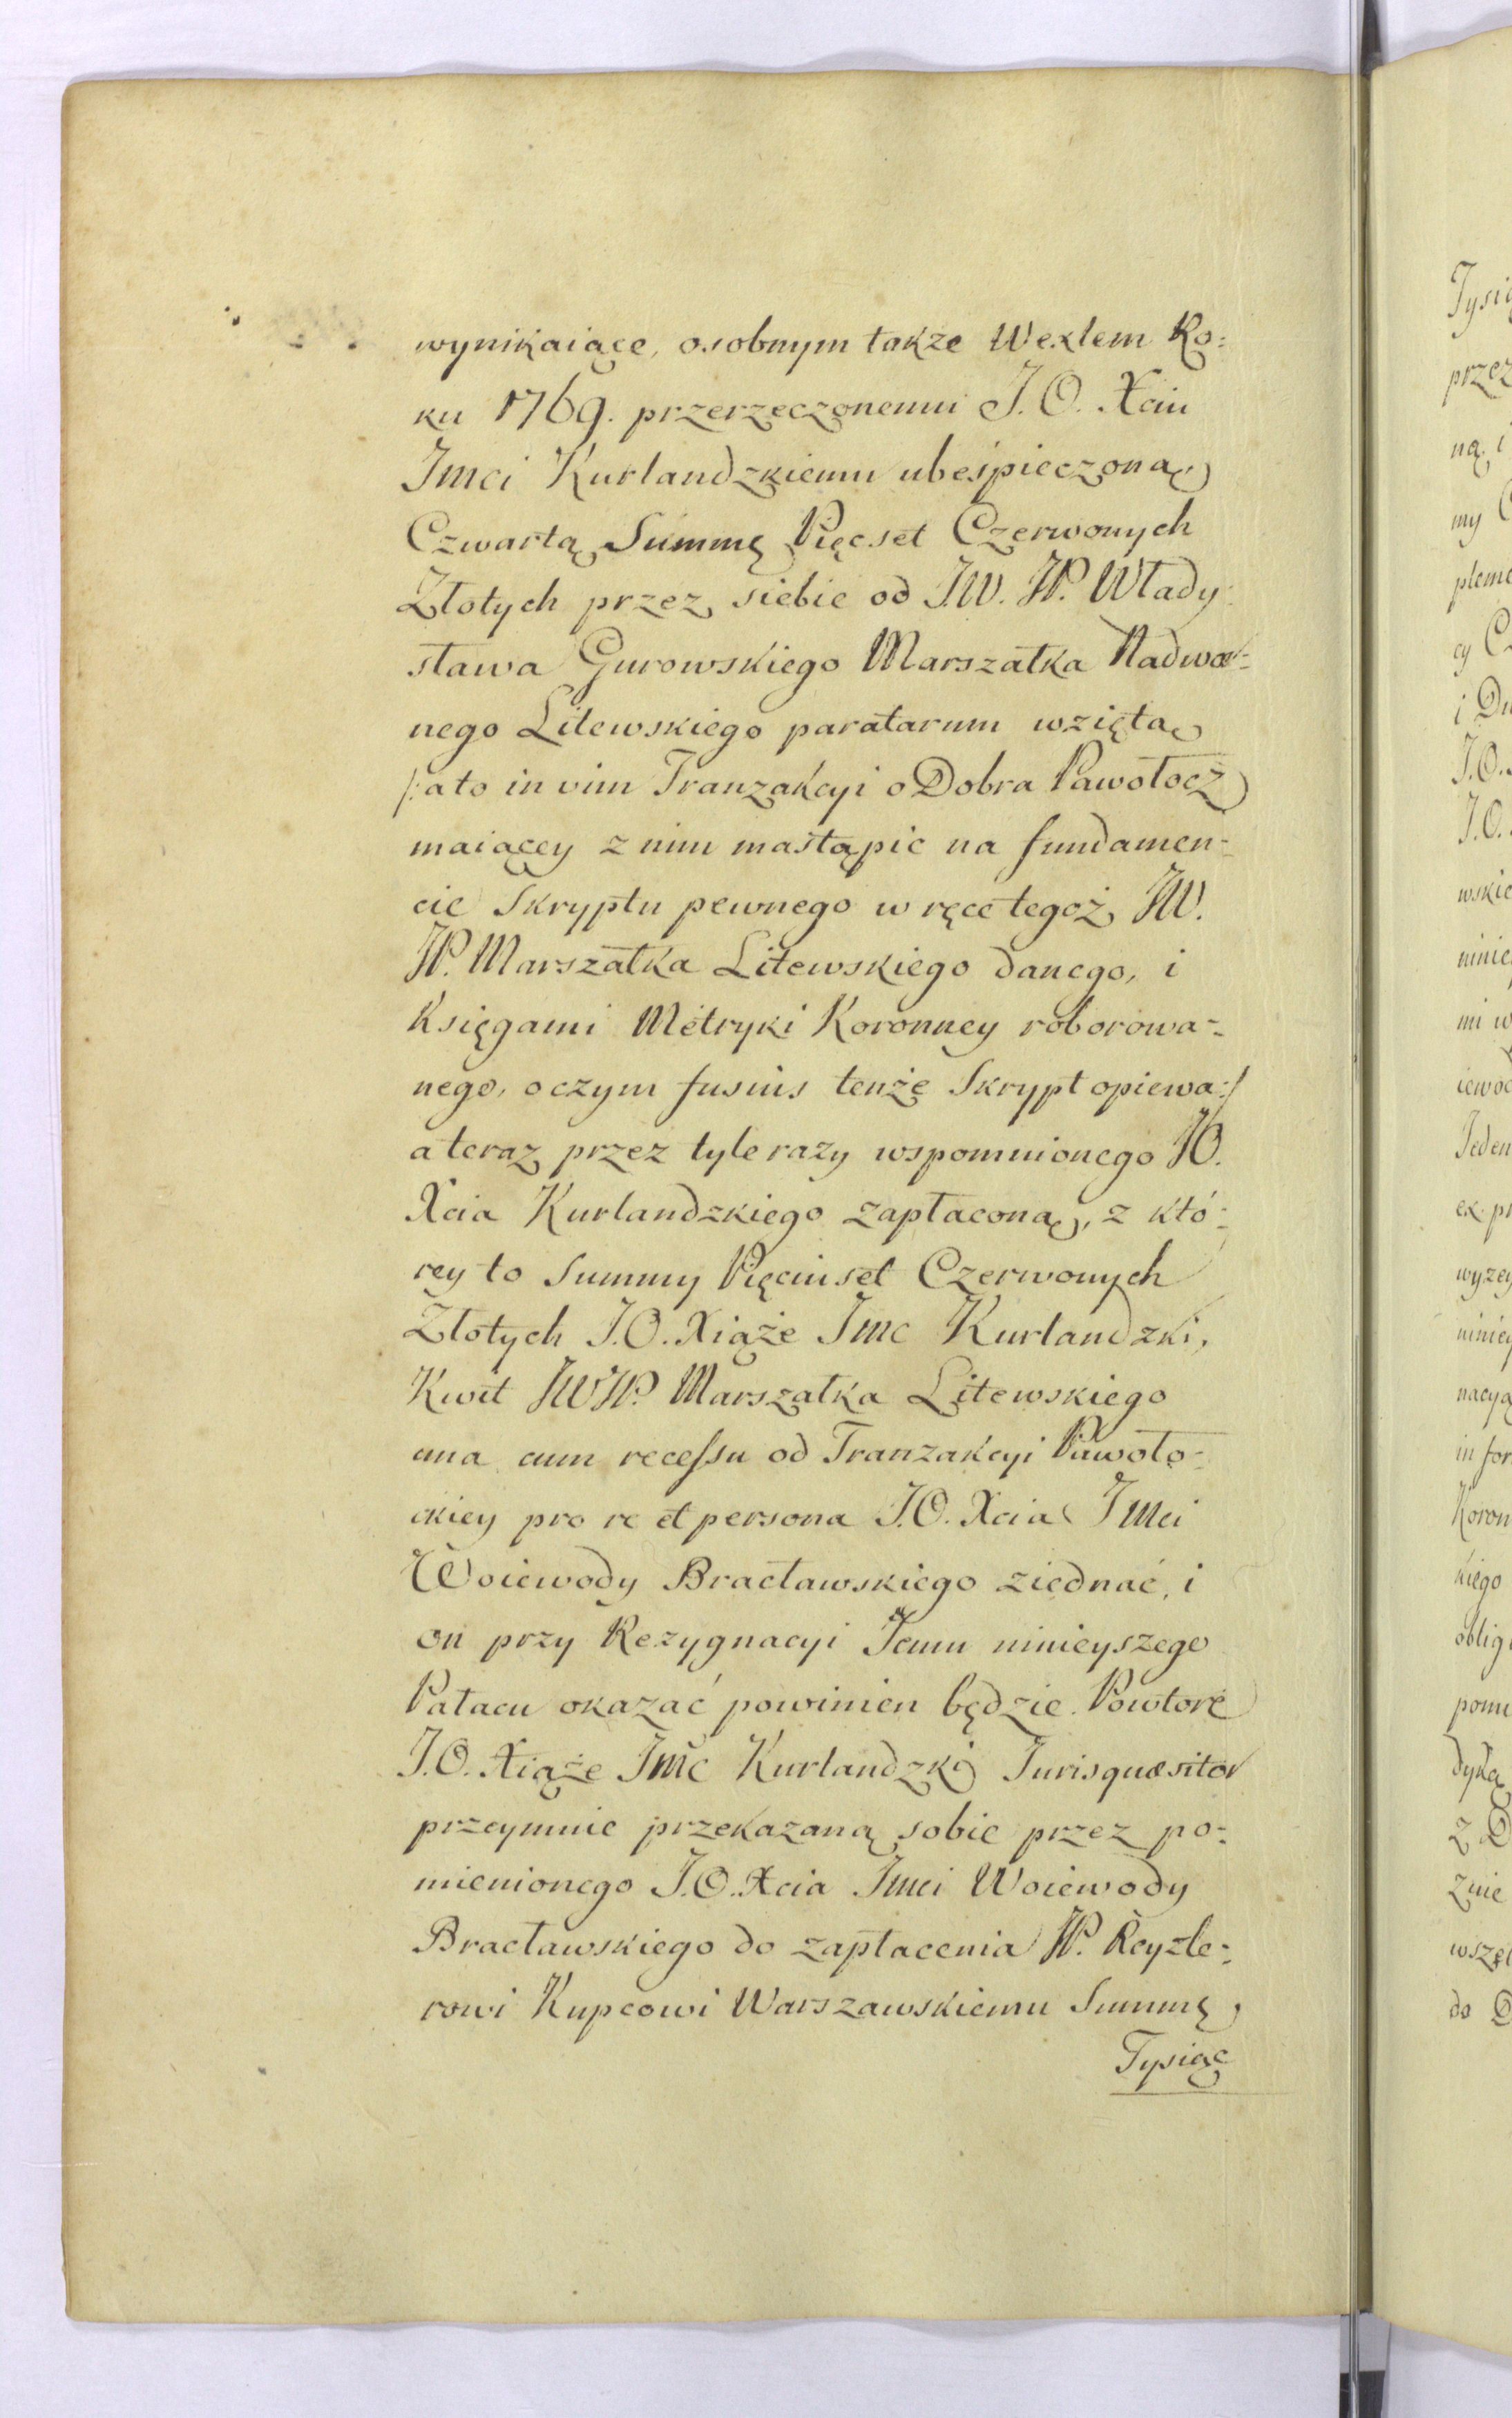 wynikaiące, osobnym także Wexlem Ro:
ku 1769. przerzeczonemu J. O. Xciu
Jmci Kurlandzkiemu ubespieczoną,
Czwartą Summę Pięcset Czerwonych
Złotych przez siebie od J.W. JP. Włady:
sława Gurowskiego Marszałka Nadwor:
nego Litewskiego paratarum wziętą
/: a to in vim Tranzakcyi o Dobra Pawołocz
maiącey z nim nastąpić na fundamen:
cie Skryptu pewnego w ręce tegoż JW.
JP. Marszałka Litewskiego danego, i
Księgami Metryki Koronney roborowa:
nego, o czym fusius tenże Skrypt opiewa :/
a teraz przez tyle razy wspomnionego JO.
Xcia Kurlandzkiego zapłaconą, z któ:
rey to Summy Pięciuset Czerwonych
Złotych J.O. Xiąże Jmc Kurlandzki,
Kwit JWJP. Marszałka Litewskiego
una cum recessu od Tranzakcyi Pawoło:
ckiey pro re et persona J.O. Xcia Jmci
Woiewody Bracławskiego ziednać, i
on przy Rezygnacyi Jemu ninieyszego
Pałacu okazać powinien będzie. Powtore
J.O. Xiąże Jmc Kurlandzki Jurisquæsitor
przeymuie przekazaną sobie przez po:
mienionego J.O. Xcia Jmci Woiewody
Bracławskiego do zapłacenia JP. Reyzle:
rowi Kupcowi Warszawskiemu Summę
Tysiąc